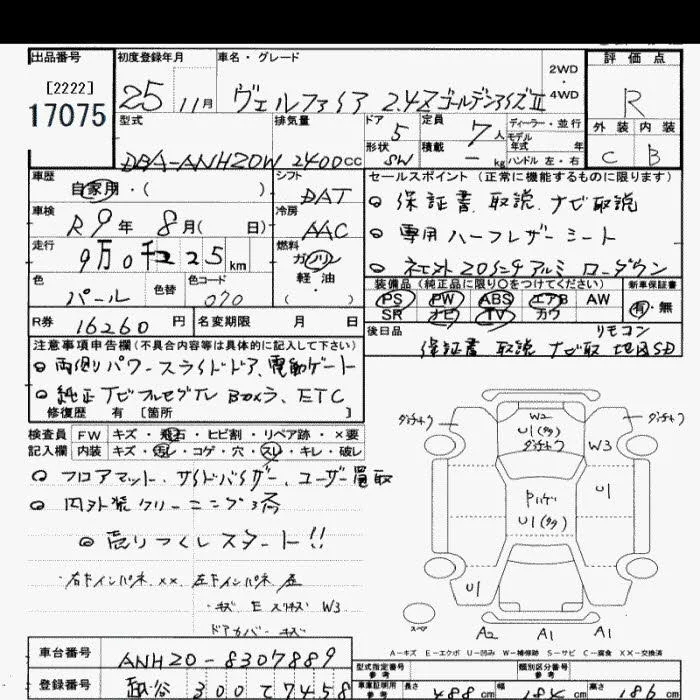 出品番号
[2222]
17075
初度登録年月
25 11月
車名・グレード
ヴェルファイア 2.4Zゴールデンアイズ II
2WD
・
4WD
評価点
R
外装 内装
C B
型式
DBA-ANH20W
排気量
2400cc
ドア
5
形状
SW
定員
7人
積載
- kg
ディーラー・並行
モデル
年式 年
ハンドル 左・右
車歴
自家用・( )
シフト
DAT
車検
R9年 8月( 日)
冷房
AAC
走行
9万0千225km
燃料
ガソリン
軽油
・
( )
色
パール
色替
色コード
070
R券
16260円
名変期限 月 日
セールスポイント (正常に機能するものに限ります)
保証書、取説、ナビ取説
専用ハーフレザーシート
ネオエスト20インチアルミ ローダウン
装備品(純正品に限り○をつけてください)
新車保証書
PS PW ABS エアB AW
SR ナビ TV カワ
有・無
後日品
リモコン
保証書 取説 ナビ取 地図SD
注意事項申告欄(不具合内容等は具体的に記入して下さい)
両側パワースライドドア、電動ゲート
純正ナビフルセグTV Bカメラ、ETC
修復歴 有 [箇所 ]
検査員 FW キズ・飛石・ヒビ割・リペア跡・×要
記入欄 内装 キズ・汚レ・コゲ・穴・スレ・キレ・破レ
フロアマット、サイドバイザー、ユーザー買取
内外装クリーニング済
◎売りつくしスタート!!
・右ドインパネ ×× 左ドインパネ
・キズ E スリキズ W3
ドアカバーキズ
ダメチカフ
W2
U1(タタ)
ダメチカフ
ダメチカフ
W3
U1
Pハゲ
U1(タタ)
U1
スペア
A2 A1 A1
A-キズ E-エクボ U-凹み W-補修跡 S-サビ C-腐食 XX-交換済
車台番号
ANH20-8307889
登録番号
300 て 7458
型式指定番号
参考
類別区分番号
参考
車庫証明用
参考
長さ 488cm
幅 184cm
高さ 186cm